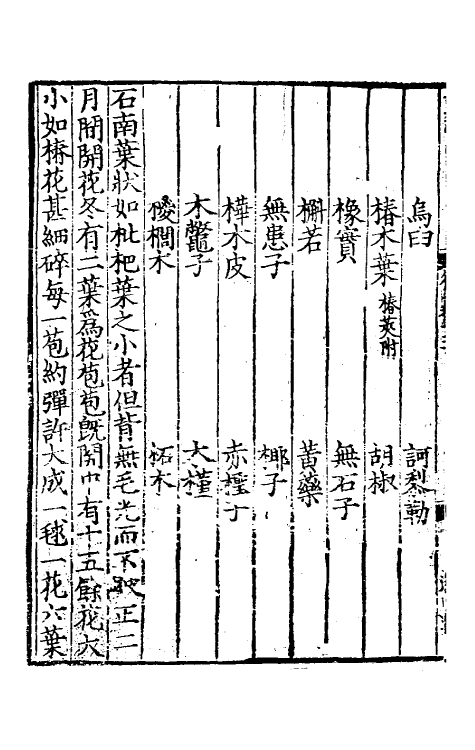 烏臼 訶黎勒
椿木葉 椿莢附 胡椒
橡實 無石子
槲若 黃藥
無患子 椰子
樺木皮 赤檉
木鼈子 木槿
㯶櫚木 柘木
石南葉狀如枇杷葉之小者但背無毛光而不皺正二
月間開花冬有二葉爲花苞苞旣開中有十五餘花大
小如椿花甚細碎每一苞約彈許大成一毬一花六葉